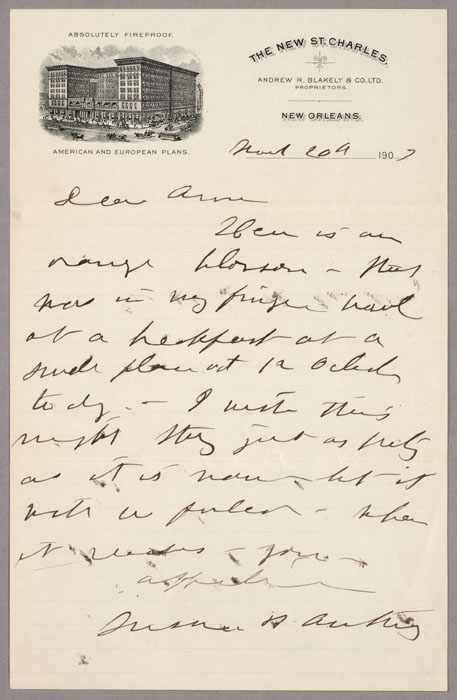 ABSOLUTELY FIREPROOF.
AMERICAN AND EUROPEAN PLANS.
THE NEW ST. CHARLES.
ANDREW R. BLAKELY & CO. LTD.
PROPRIETORS.
NEW ORLEANS.
190
Dear
Here is an
orange blossom – that
was in my finger bowl
at a breakfast at a
small place at 12 Oclock
to dy. – I wish this
might stay just as pretty
as it is now – but it
will be faded – when
it reaches – you –
Susan B Anthony